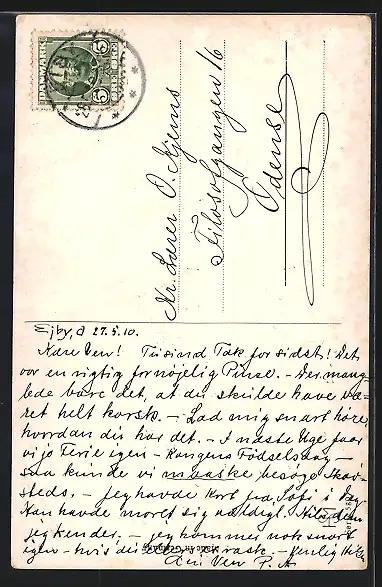 DANMARK
5 5
Hr Lærer O. Hjems
Filosofgangen 16
Odense
Ejby, d 27.5.10.
Kære Ven! Tusind Tak for sidst! Det
var en rigtig fornøjelig Pinse. - Der mang-
lede bare det, at du skulde have væ-
ret helt karsk. - Lad mig snart høre,
hvordan du har det. - I næste Uge faar
vi jo Ferie igen - Kongens Fødselsdag -
saa kunde vi maaske besøge Skov-
steds. - Jeg havde Kort fra Sofi i Dag.
Han havde moret sig vældigt. Hils dem
jeg kender. - jeg kommer nok snart
igen - hvis du rask. - Kærlig Hilsen
din Ven P. A